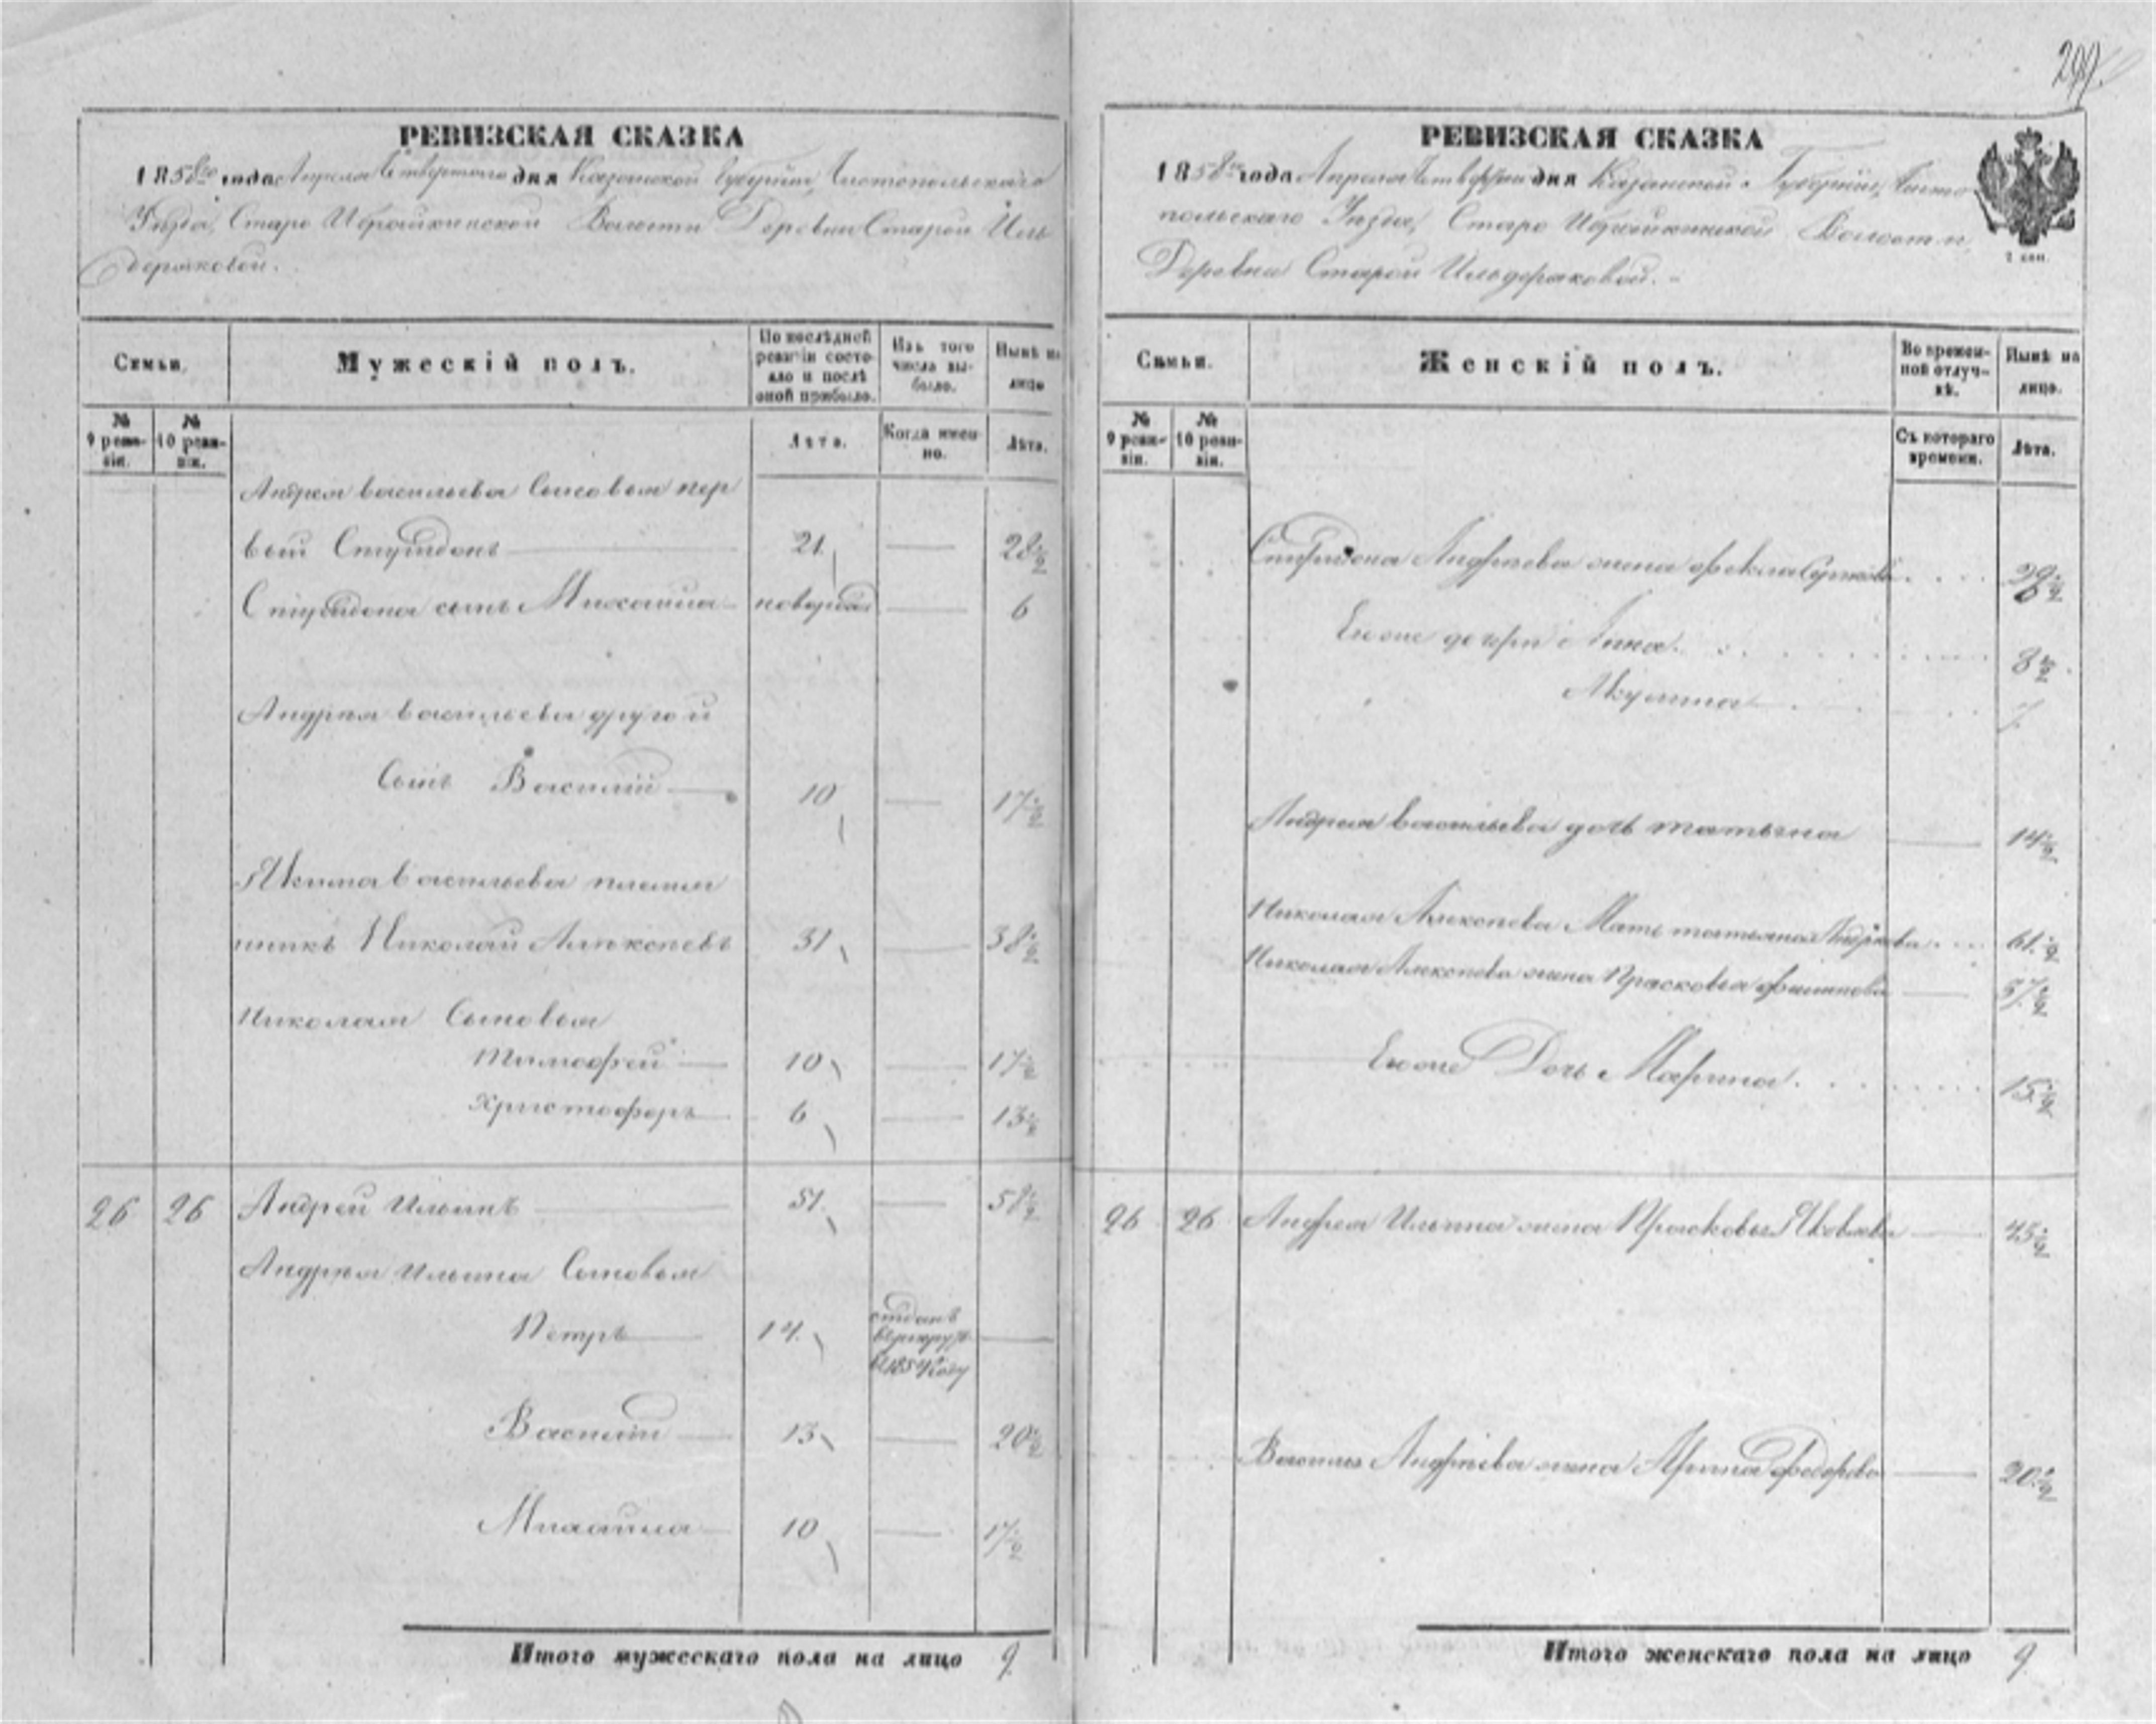 299.
РЕВИЗСКАЯ СКАЗКА
1858го года Апреля Четвертаго дня Казанской Губернiи, Чистопольскаго
Уѣзда, Старо Ибрайкинской Волости Деревни Старой Иль
деряковой.
Семьи.
Мужескiй полъ.
По послѣдней ревизiи состояло и послѣ оной прибыло.
Изъ того числа выбыло.
Нынѣ на лицо
№ 9 ревизiи.
№ 10 ревизiи.
Лѣта.
Когда именно.
Лѣта.
Андрея Васильева Сыновья пер
вый Спиридонъ 21 28½
Спиридона сынъ Михаила новорож 6
Андрея Васильева другой
Сынъ Василiй 10 17½
Якима Васильева племян
никъ Николай Алексѣевъ 31 38½
Николая Сыновья
Тимофей 10 17½
Христофоръ 6 13½
26 26 Андрей Ильинъ 51 58½
Андрея Ильина Сыновья
Петръ 14 отданъ
в рекруты
в 1854 году
Василiй 13 20½
Михаила 10 17½
Итого мужескаго пола на лицо 9
РЕВИЗСКАЯ СКАЗКА
2 коп.
1858го года Апреля Четвертаго дня Казанской Губернiи, Чисто
польскаго Уѣзда, Старо Ибрайкинской Волости,
Деревни Старой Ильдеряковой.
Семьи.
Женскiй полъ.
Во временной отлучкѣ.
Нынѣ на лицо.
№ 9 ревизiи.
№ 10 ревизiи.
Съ котораго времени.
Лѣта.
Спиридона Андреева жена Фекла
Ею же дочери Анна 8½
Акулина 7
Андрея Васильева дочь татьяна 14½
Николая Алексѣева Мать татьяна Андреева 61½
Николая Алексѣева жена Прасковья Филипова 37½
Ею же Дочь Марина 15½
26 26 Андрея Ильина жена Прасковья Яковлева 45½
Василья Андреева жена Арина Федорова 20½
Итого женскаго пола на лицо 9